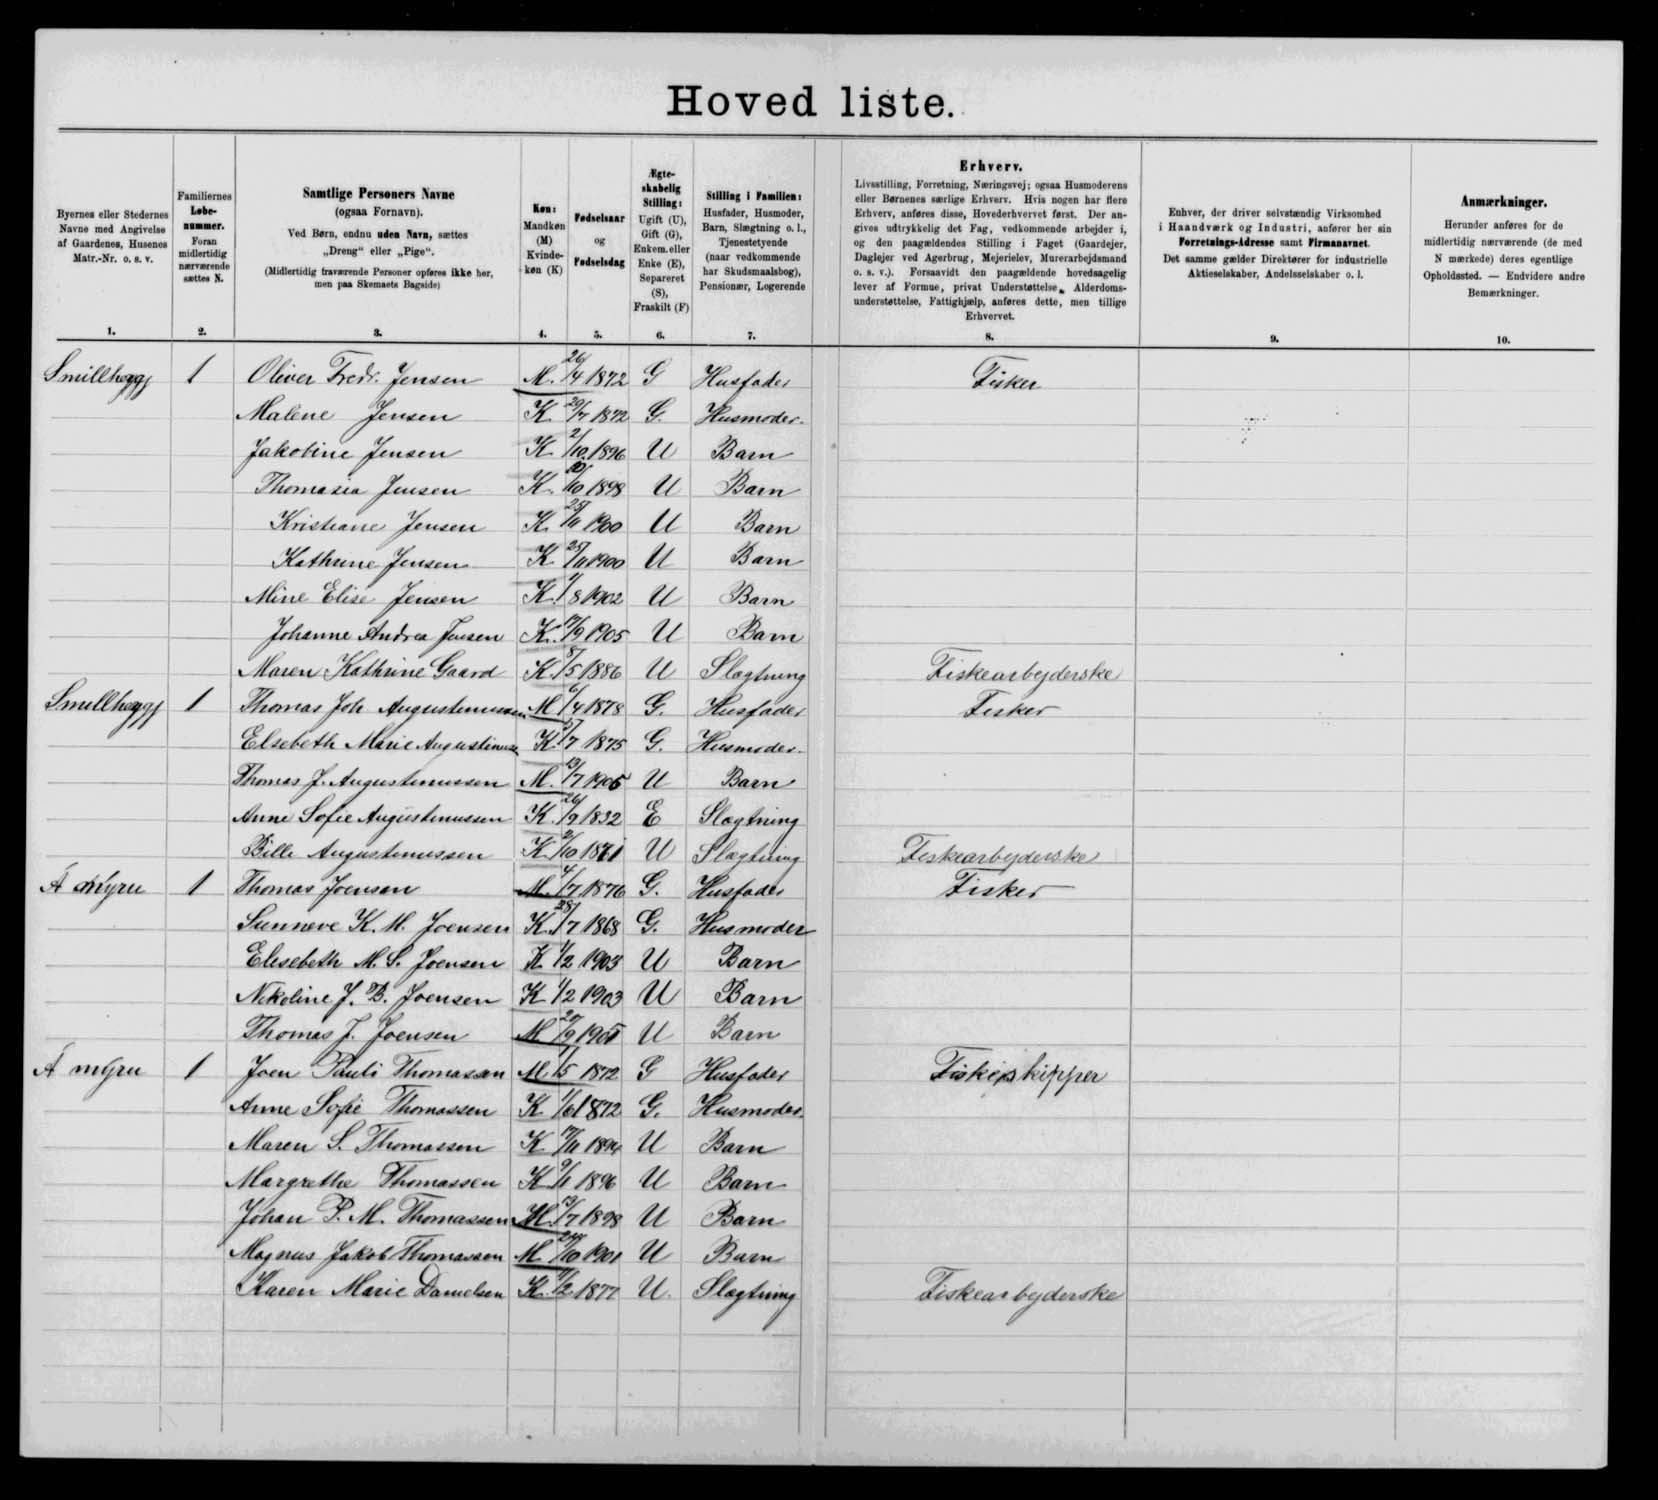 Hoved liste.
Byernes eller Stedernes Navne med Angivelse af Gaardenes, Husenes Matr.-Nr. o. s. v.
Familiernes Løbenummer. Foran midlertidig nærværende sættes N.
Samtlige Personers Navne
(ogsaa Fornavn).
Ved Børn, endnu uden Navn, sættes
„Dreng“ eller „Pige“.
(Midlertidig fraværende Personer opføres ikke her,
men paa Skemaets Bagside)
Køn: Mandkøn (M) Kvindekøn (K)
Fødselsaar og Fødselsdag
Ægteskabelig Stilling: Ugift (U), Gift (G), Enkem. eller Enke (E), Separeret (S), Fraskilt (F)
Stilling i Familien: Husfader, Husmoder, Barn, Slægtning o. l., Tjenestetyende (naar vedkommende har Skudsmaalsbog), Pensionær, Logerende
Erhverv.
Livsstilling, Forretning, Næringsvej; ogsaa Husmoderens
eller Børnenes særlige Erhverv. Hvis nogen har flere
Erhverv, anføres disse, Hovederhvervet først. Der an-
gives udtrykkelig det Fag, vedkommende arbejder i,
og den paagældendes Stilling i Faget (Gaardejer,
Daglejer ved Agerbrug, Mejerielev, Murerarbejdsmand
o. s. v.). Forsaavidt den paagældende hovedsagelig
lever af Formue, privat Understøttelse, Alderdoms-
understøttelse, Fattighjælp, anføres dette, men tillige
Erhvervet.
Enhver, der driver selvstændig Virksomhed
i Haandværk og Industri, anfører her sin
Forretnings-Adresse samt Firmanavnet.
Det samme gælder Direktører for industrielle
Aktieselskaber, Andelsselskaber o. l.
Anmærkninger.
Herunder anføres for de
midlertidig nærværende (de med
N mærkede) deres egentlige
Opholdssted. — Endvidere andre
Bemærkninger.
1. 2. 3. 4. 5. 6. 7. 8. 9. 10.
Smillheygj 1 Oliver Fredr. Jensen M. 26/4 1872 G Husfader Fisker
Malene Jensen K 20/7 1872 G. Husmoder.
Jakobine Jensen K 2/10. 1896 U Barn
Thomasia Jensen K. /10 1898 U Barn
Kristiane Jensen K 25/11 1900 U Barn
Kathrine Jensen K 25/11 1900 U Barn
Mine Elise Jensen K. /8 1902 U Barn
Johanne Andrea Jensen K. 17/9 1905 U Barn
Maren Kathrine Gaard K 8/5 1886 U Slægtning Fiskearbejderske
Smillheygj 1 Thomas Joh Augustinussen M 6/4 1878 G. Husfader Fisker
Elsebeth Marie Augustinussen K. /7 1875 G. Husmoder.
Thomas J. Augustinussen M. 13/7 1905 U Barn
Anne Sofie Augustinussen K. 26/9 1832 E Slægtning
Bille Augustinussen K 2/10 1871 U Slægtning Fiskearbejderske
Á mýru 1 Thomas Joensen M. 4/7 1876 G. Husfader Fisker
Sunneve K. M. Joensen K. 28/7 1868 G. Husmoder
Elisebeth M. S. Joensen K 1/2 1903 U Barn
Nikoline J. B. Joensen K 1/2 1903 U Barn
Thomas J. Joensen M 20/9 1905 U Barn
Á mýru 1 Joen Pauli Thomassen M. 1/5 1872 G Husfader Fiskeskipper
Anne Sofie Thomassen K 1/6 1872 G. Husmoder.
Maren S. Thomassen K 17/11 1894 U Barn
Margrethe Thomassen K 9/11 1896 U Barn
Johan P. M. Thomassen M. 13/7 1898 U Barn
Magnus Jakob Thomassen M 24/10 1901 U Barn
Karen Marie Danielsen K. /2 1877 U. Slægtning Fiskearbejderske